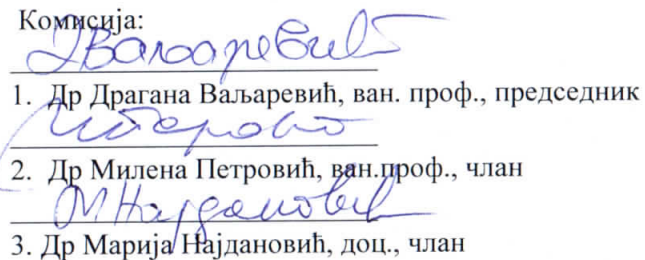 Комисија:
ДВаљаревић
1. Др Драгана Ваљаревић, ван. проф., председник
2. Др Милена Петровић, ван.проф., члан
МНајдановић
3. Др Марија Најдановић, доц., члан